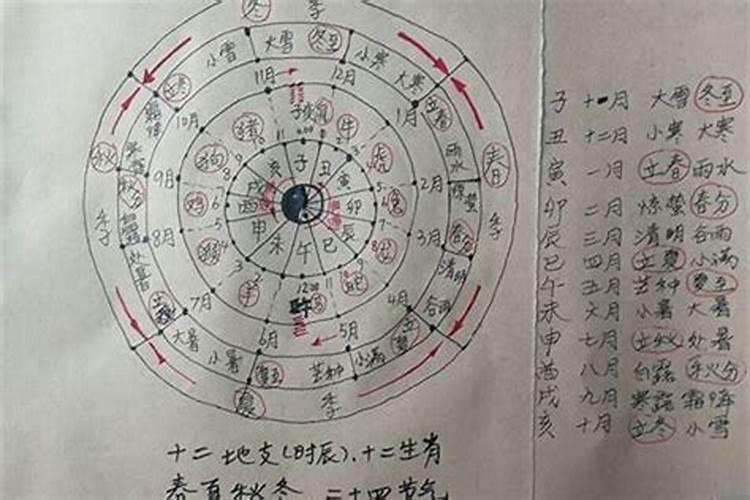 冬 季
小雪 大雪 冬至 小寒 大寒
立冬 立春
11月 12月
10月 1月
子 鼠 牛
猪 虎
秋 春
狗 亥 子 丑 寅 雨水
9月 戌 2月
秋分 鸡 酉 卯 兔 惊蛰
季 8月 申 辰 3月 春分 季
处暑 猴 未 午 巳 清明
立秋 7月 羊 12:00 4月 谷雨
大暑 小暑 6月 5月 立夏
夏至 芒种 小满
夏 季
子 十一月 大雪 冬至
丑 十二月 小寒 大寒
寅 一月 立春 雨水
卯 二月 惊蛰 春分
辰 三月 清明 谷雨
巳 四月 立夏 小满
午 五月 芒种 夏至
未 六月 小暑 大暑
申 七月 立秋 处暑
酉 八月 白露 秋分
戌 九月 寒露 霜降
亥 十月 立冬 小雪
十二地支(时辰)、十二生肖
春夏秋冬 二十四节气